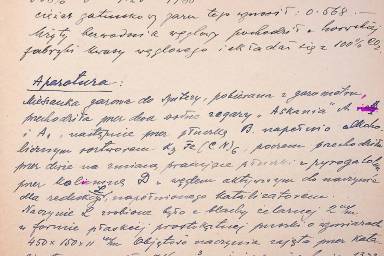 ciężar gatunkowy gazu tego wynosił: 0.568 —
Użyty bezwodnik węglowy pochodził z lwowskiej
fabryki kwasu węglowego i składał się z 100% CO₂
Aparatura:
Mieszanka gazowa do syntezy, pobierana z gazometru,
przechodziła przez dwa ostre zegary „Askania" A
i A₁, następnie przez płuczkę B. napełnioną alkali-
licznym roztworem K₃ Fe (CN)₆, poczem przechodziła
przez dwie na zmianę pracujące płuczki z pyrogalolem
przez kolumnę D z węglem aktywnym do naczynia
dla redukcji napełnionego katalizatorem.
Naczynie Z zrobione było z blachy żelaznej 2 m/m
w formie płaskiej prostokątnej puszki o wymiarach
450×150×11 m/m Objętość naczynia zajęta przez kata-